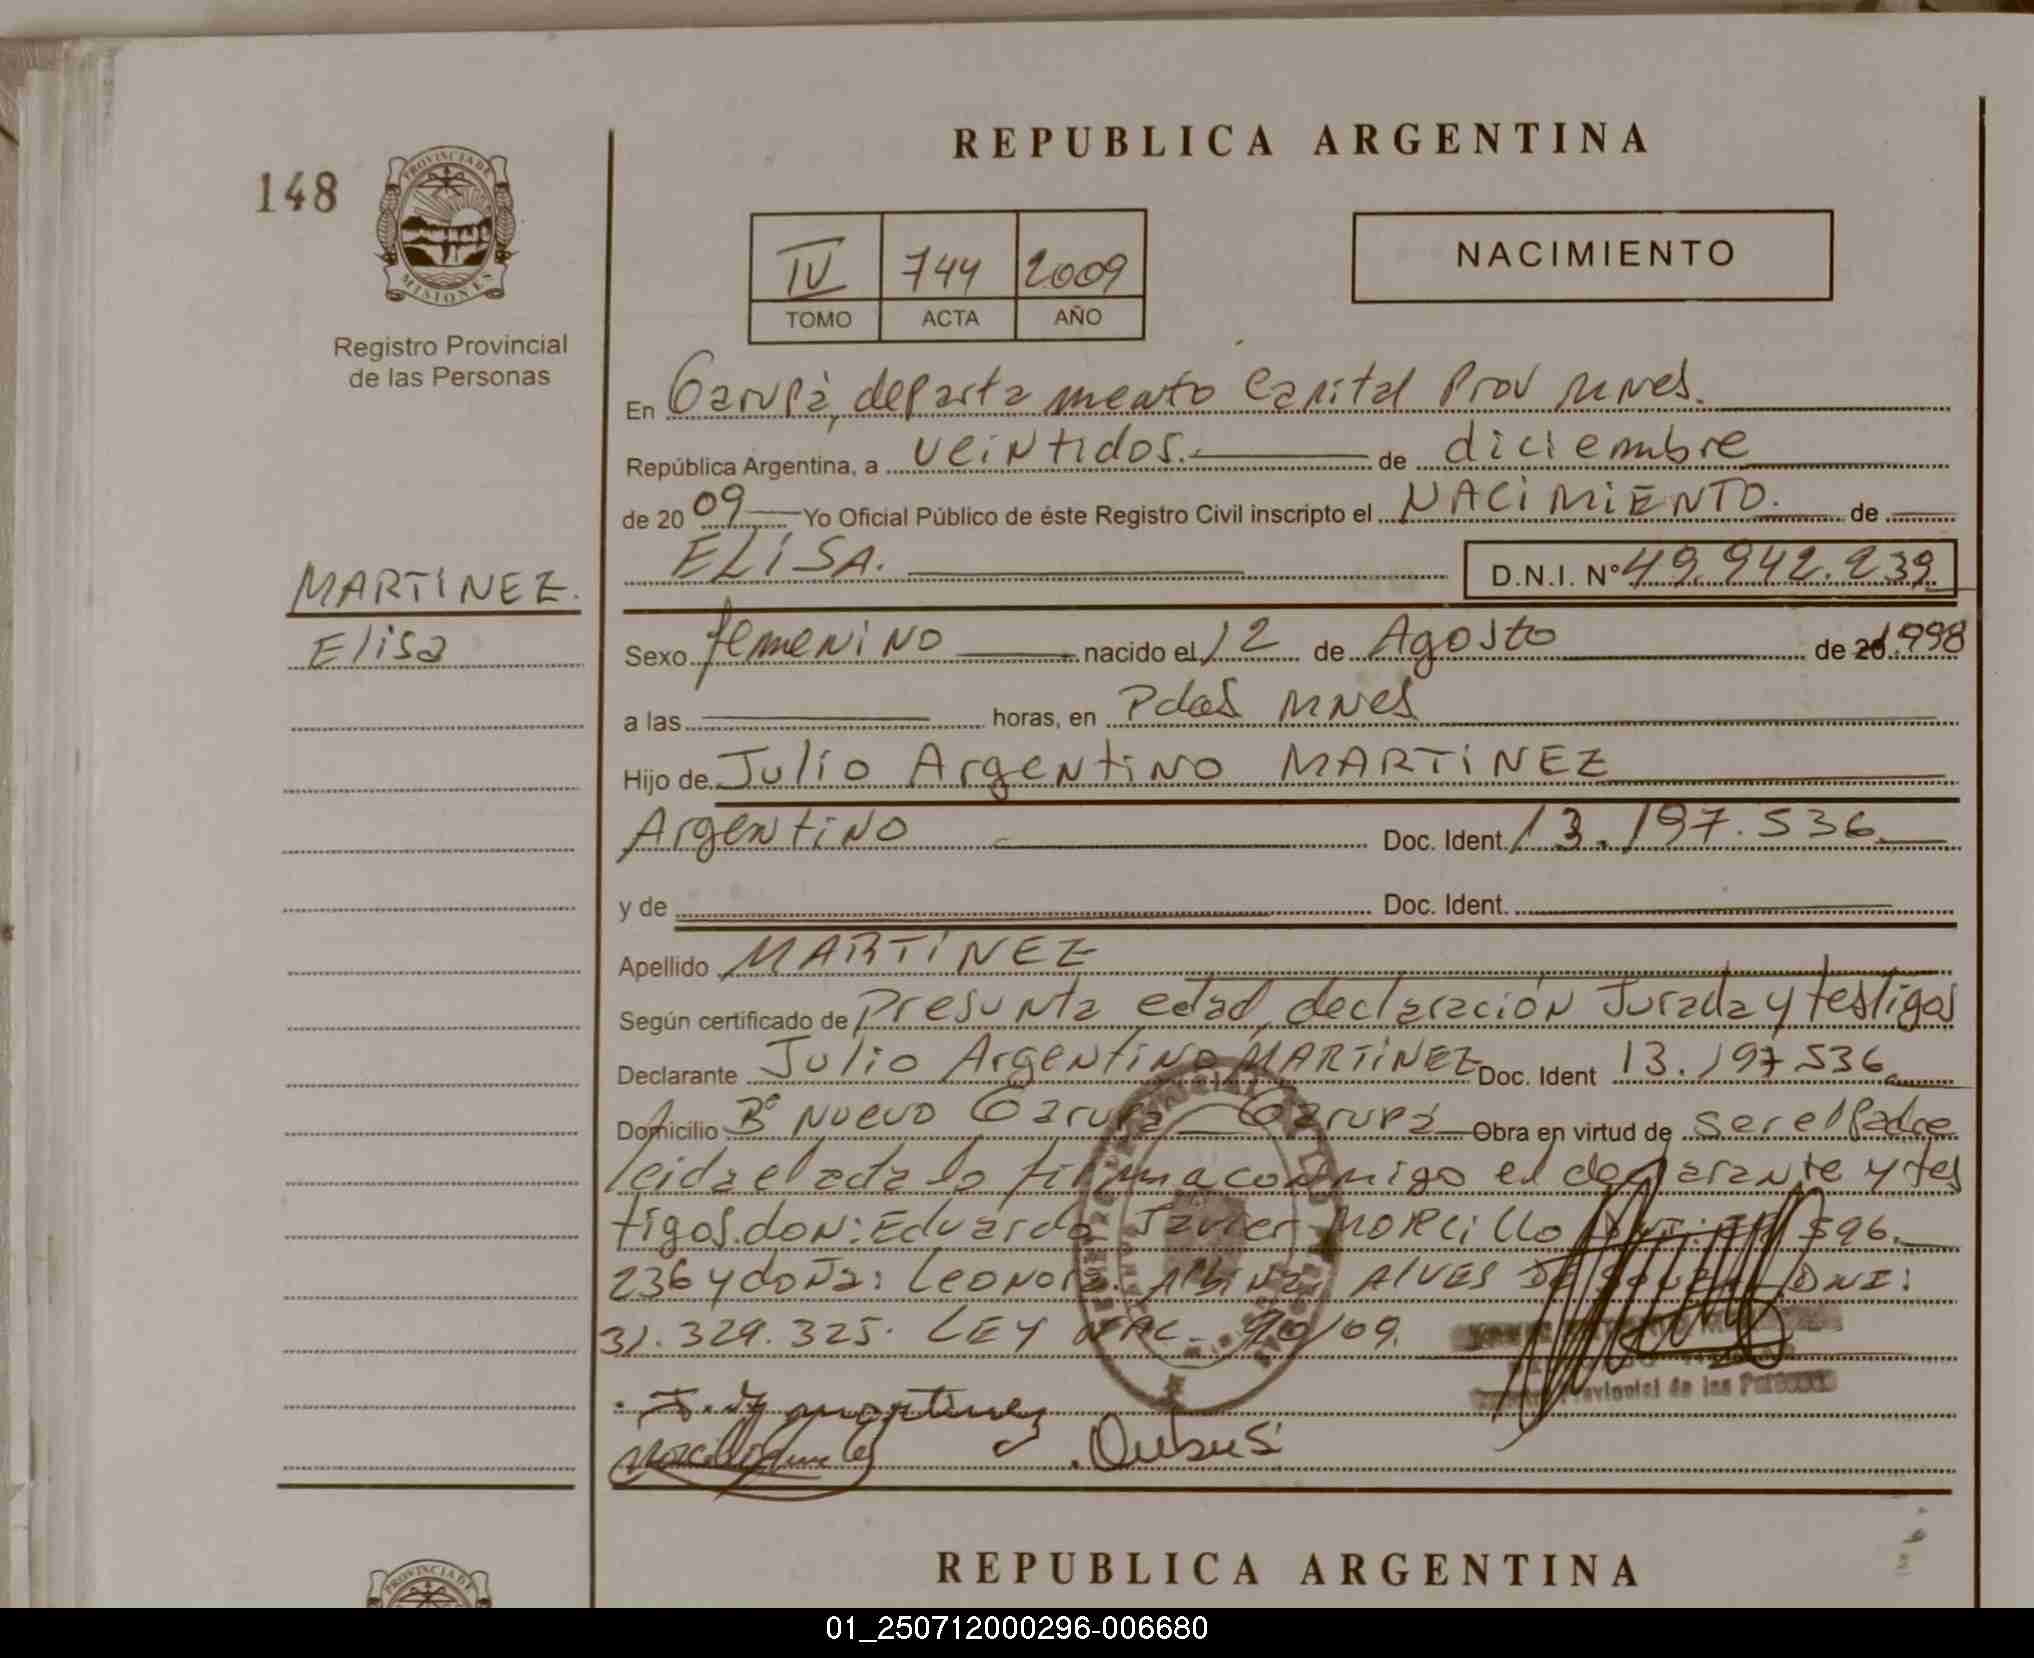 REPUBLICA ARGENTINA
148
PROVINCIA DE
MISIONES
Registro Provincial
de las Personas
IV 744 2009
TOMO ACTA AÑO
NACIMIENTO
En Garupá, departamento Capital Prov Mnes.
República Argentina, a veintidos. de diciembre
de 2009 Yo Oficial Público de éste Registro Civil inscripto el NACIMIENTO. de
ELISA. D.N.I. Nº 49.942.239
MARTINEZ.
Elisa
Sexo femenino nacido el 12 de Agosto de 20 1998
a las horas, en Pdas Mnes
Hijo de Julio Argentino MARTINEZ
Argentino Doc. Ident. 13.197.536
y de Doc. Ident.
Apellido MARTINEZ
Según certificado de Presunta edad, declaración Jurada y testigos
Declarante Julio Argentino MARTINEZ Doc. Ident 13.197.536
Domicilio Bº Nuevo Garupa Garupá Obra en virtud de ser el Padre
leida el acta lo firma conmigo el declarante y tes
tigos.don: Eduardo Javier MORCILLO 596.
236 y doña: Leonora Albina ALVES DE SOUZA DNI:
31.329.325. LEY NAC. 90/09.
Provincial de las Personas
martinez
REPUBLICA ARGENTINA
PROVINCIA DE
01_250712000296-006680